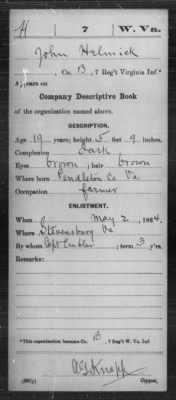 H 7 W. Va.
John Helmick
, Co. B, 7 Reg't Virginia Inf.*
Appears on
Company Descriptive Book
of the organization named above.
DESCRIPTION.
Age 19 years; height 5 feet 9 inches.
Complexion Dark
Eyes brown; hair brown
Where born Pendleton Co Va.
Occupation farmer
ENLISTMENT.
When May 2, 1864.
Where Stevensburg Va
By whom Capt ; term 3 y'rs.
Remarks:
*This organization became Co. B, 7 Reg't W. Va. Inf.
A G Knapp
Copyist.